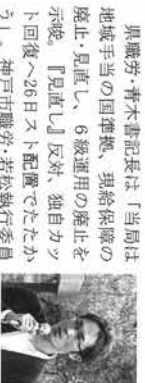 県職労・青木書記長は「当局は
地域手当の国準拠、現給保障の
廃止・見直し、6級運用の廃止を
示唆。『見直し』反対、独自カッ
ト回復へ26日スト配置でたたか
う」。神戸市職労・若松執行委員